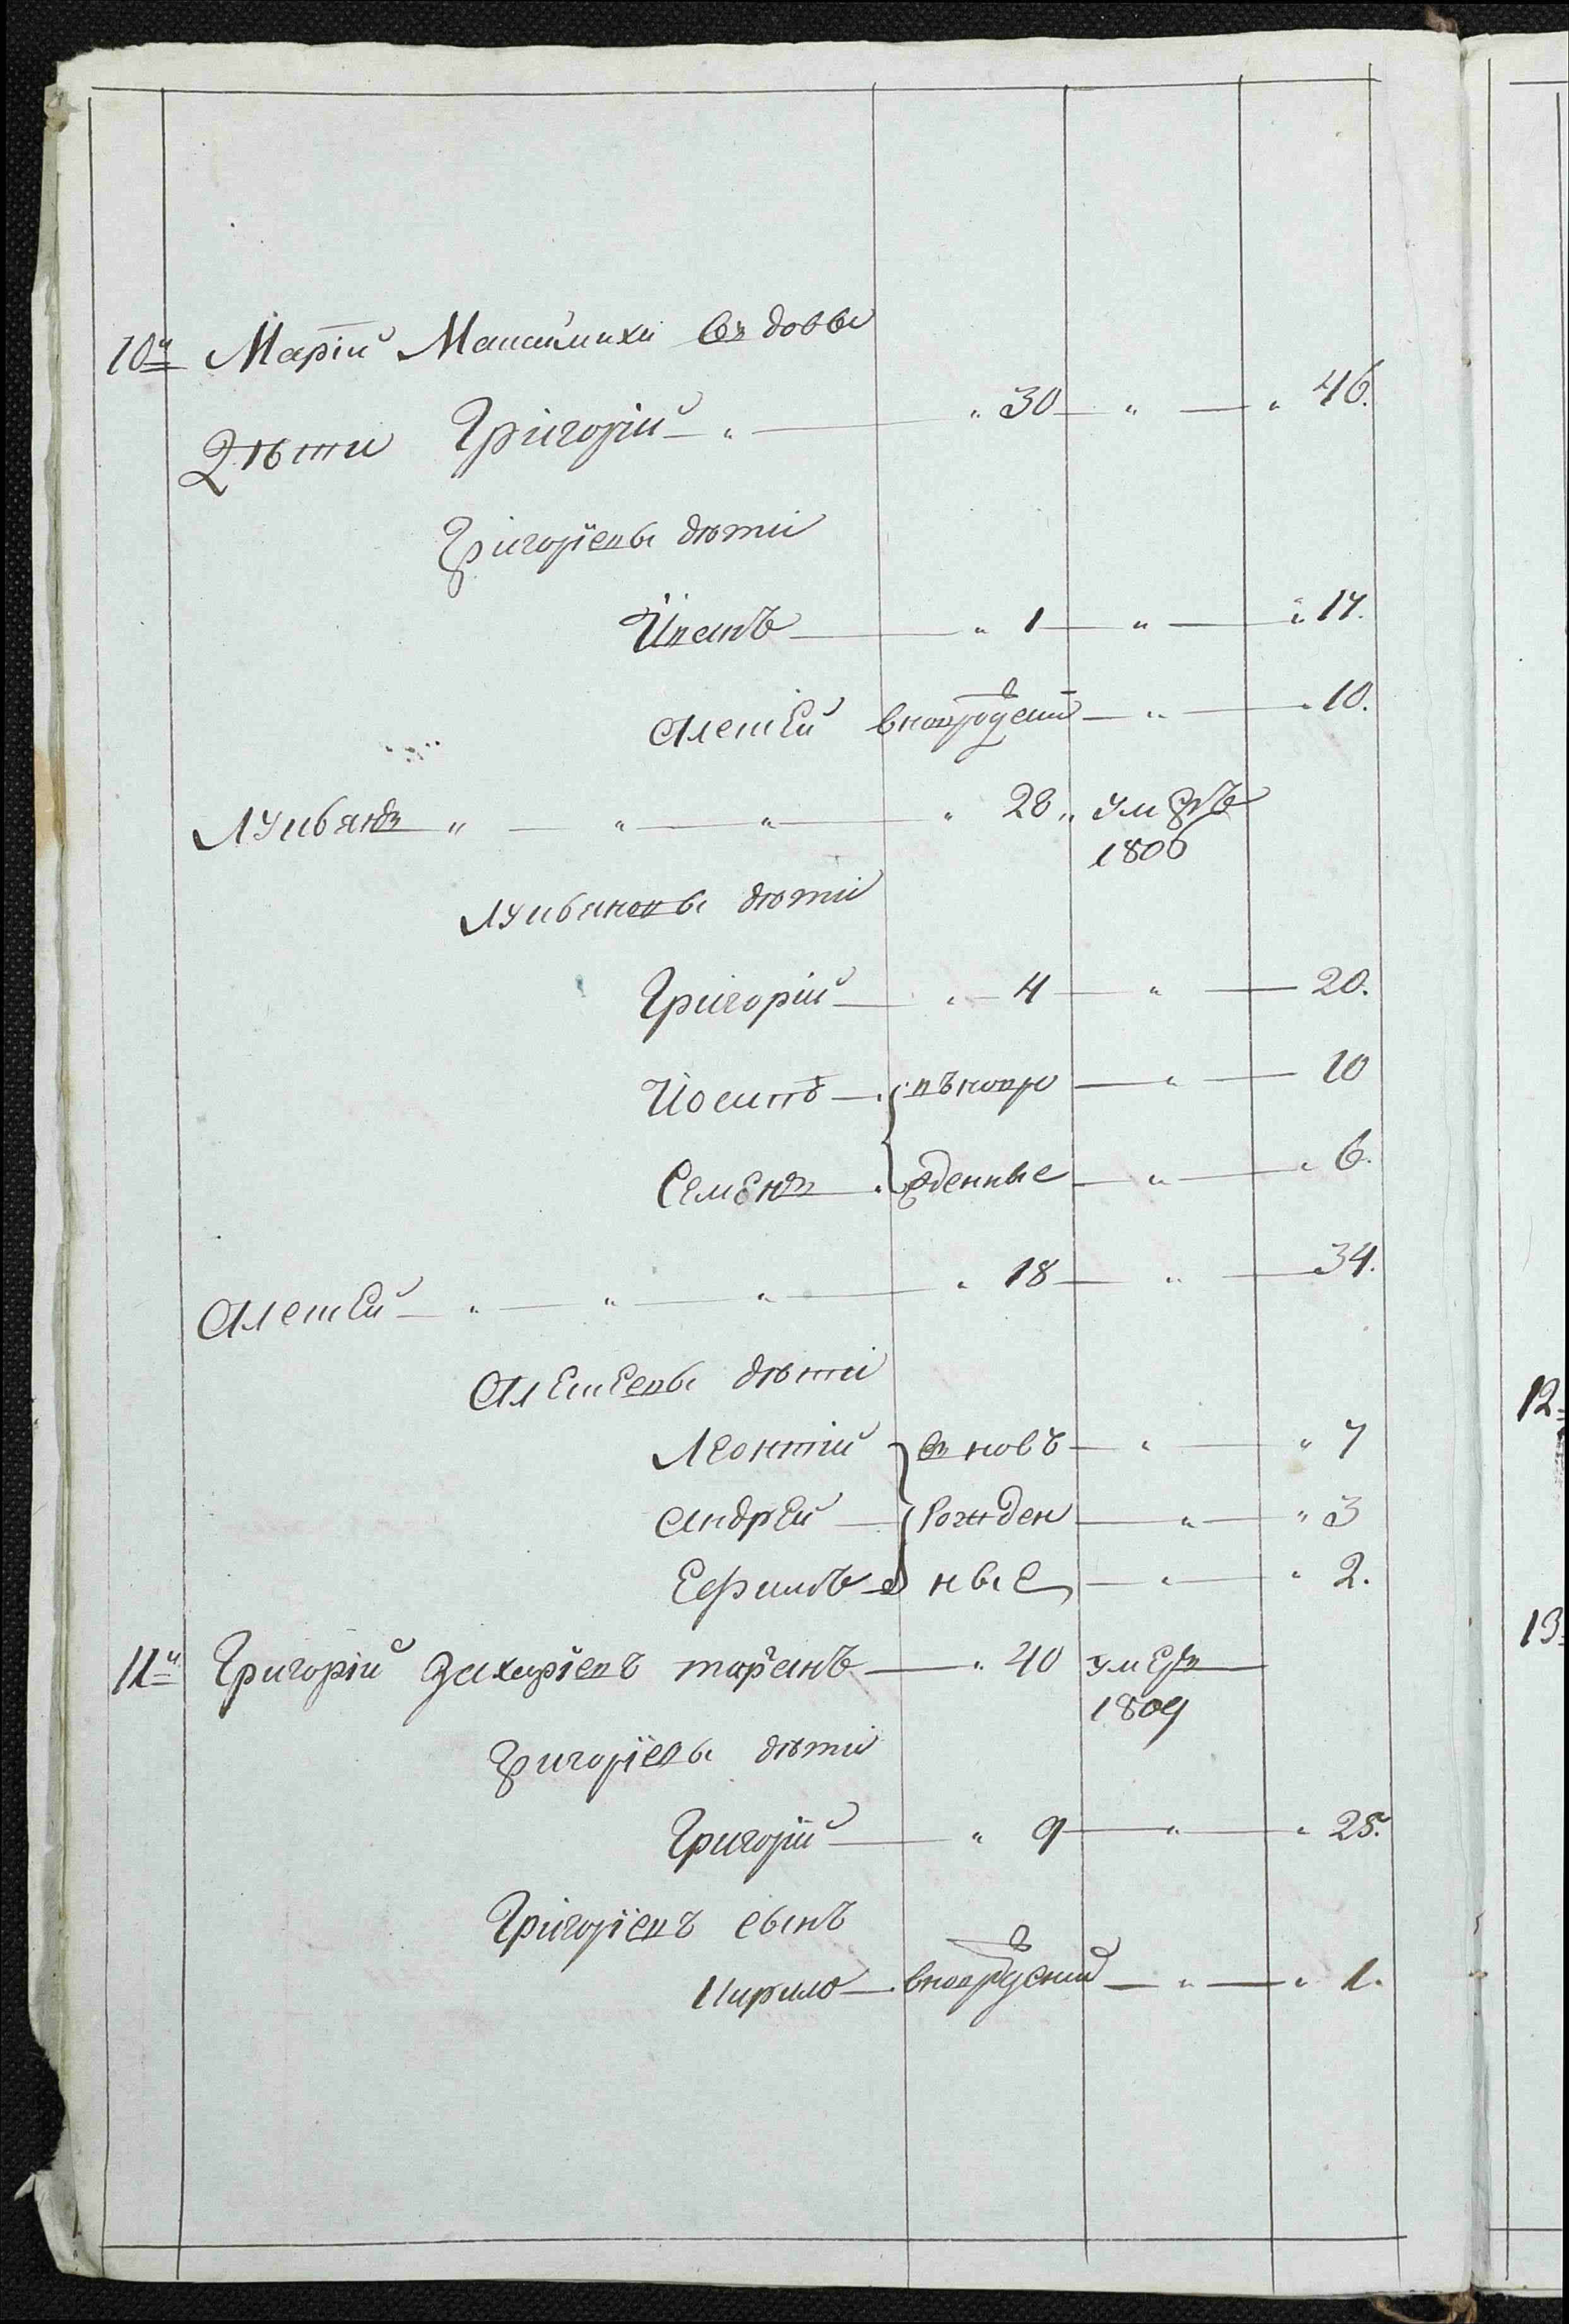 10й Марiи Максимихи вдовы
Дѣти Григорiй „ „ 30 „ „ 46.
Григорiевы дѣти
Иванъ „ 1 „ „ 17.
Алексей вноврожден „ „ 10.
Лукьянъ „ „ „ „ 28 „ умеръ
1806
Лукьяновы дѣти
Григорiй „ 4 „ 20.
Иосипъ вьновро „ 10
Семенъ жденные „ „ 6.
Алексей „ „ „ „ 18 „ 34.
Алексеевы дѣти
Леонтiй вновъ „ „ 7
Андрей рожден „ „ 3
Ефимъ ные „ „ 2.
11й Григорiй Захарiевъ таранъ „ 40 умеръ
1809
Григорiевы дѣти
Григорiй „ 9 „ „ 25.
Григорiевъ сынъ
Кирило вноврждений „ „ 1.
12
13